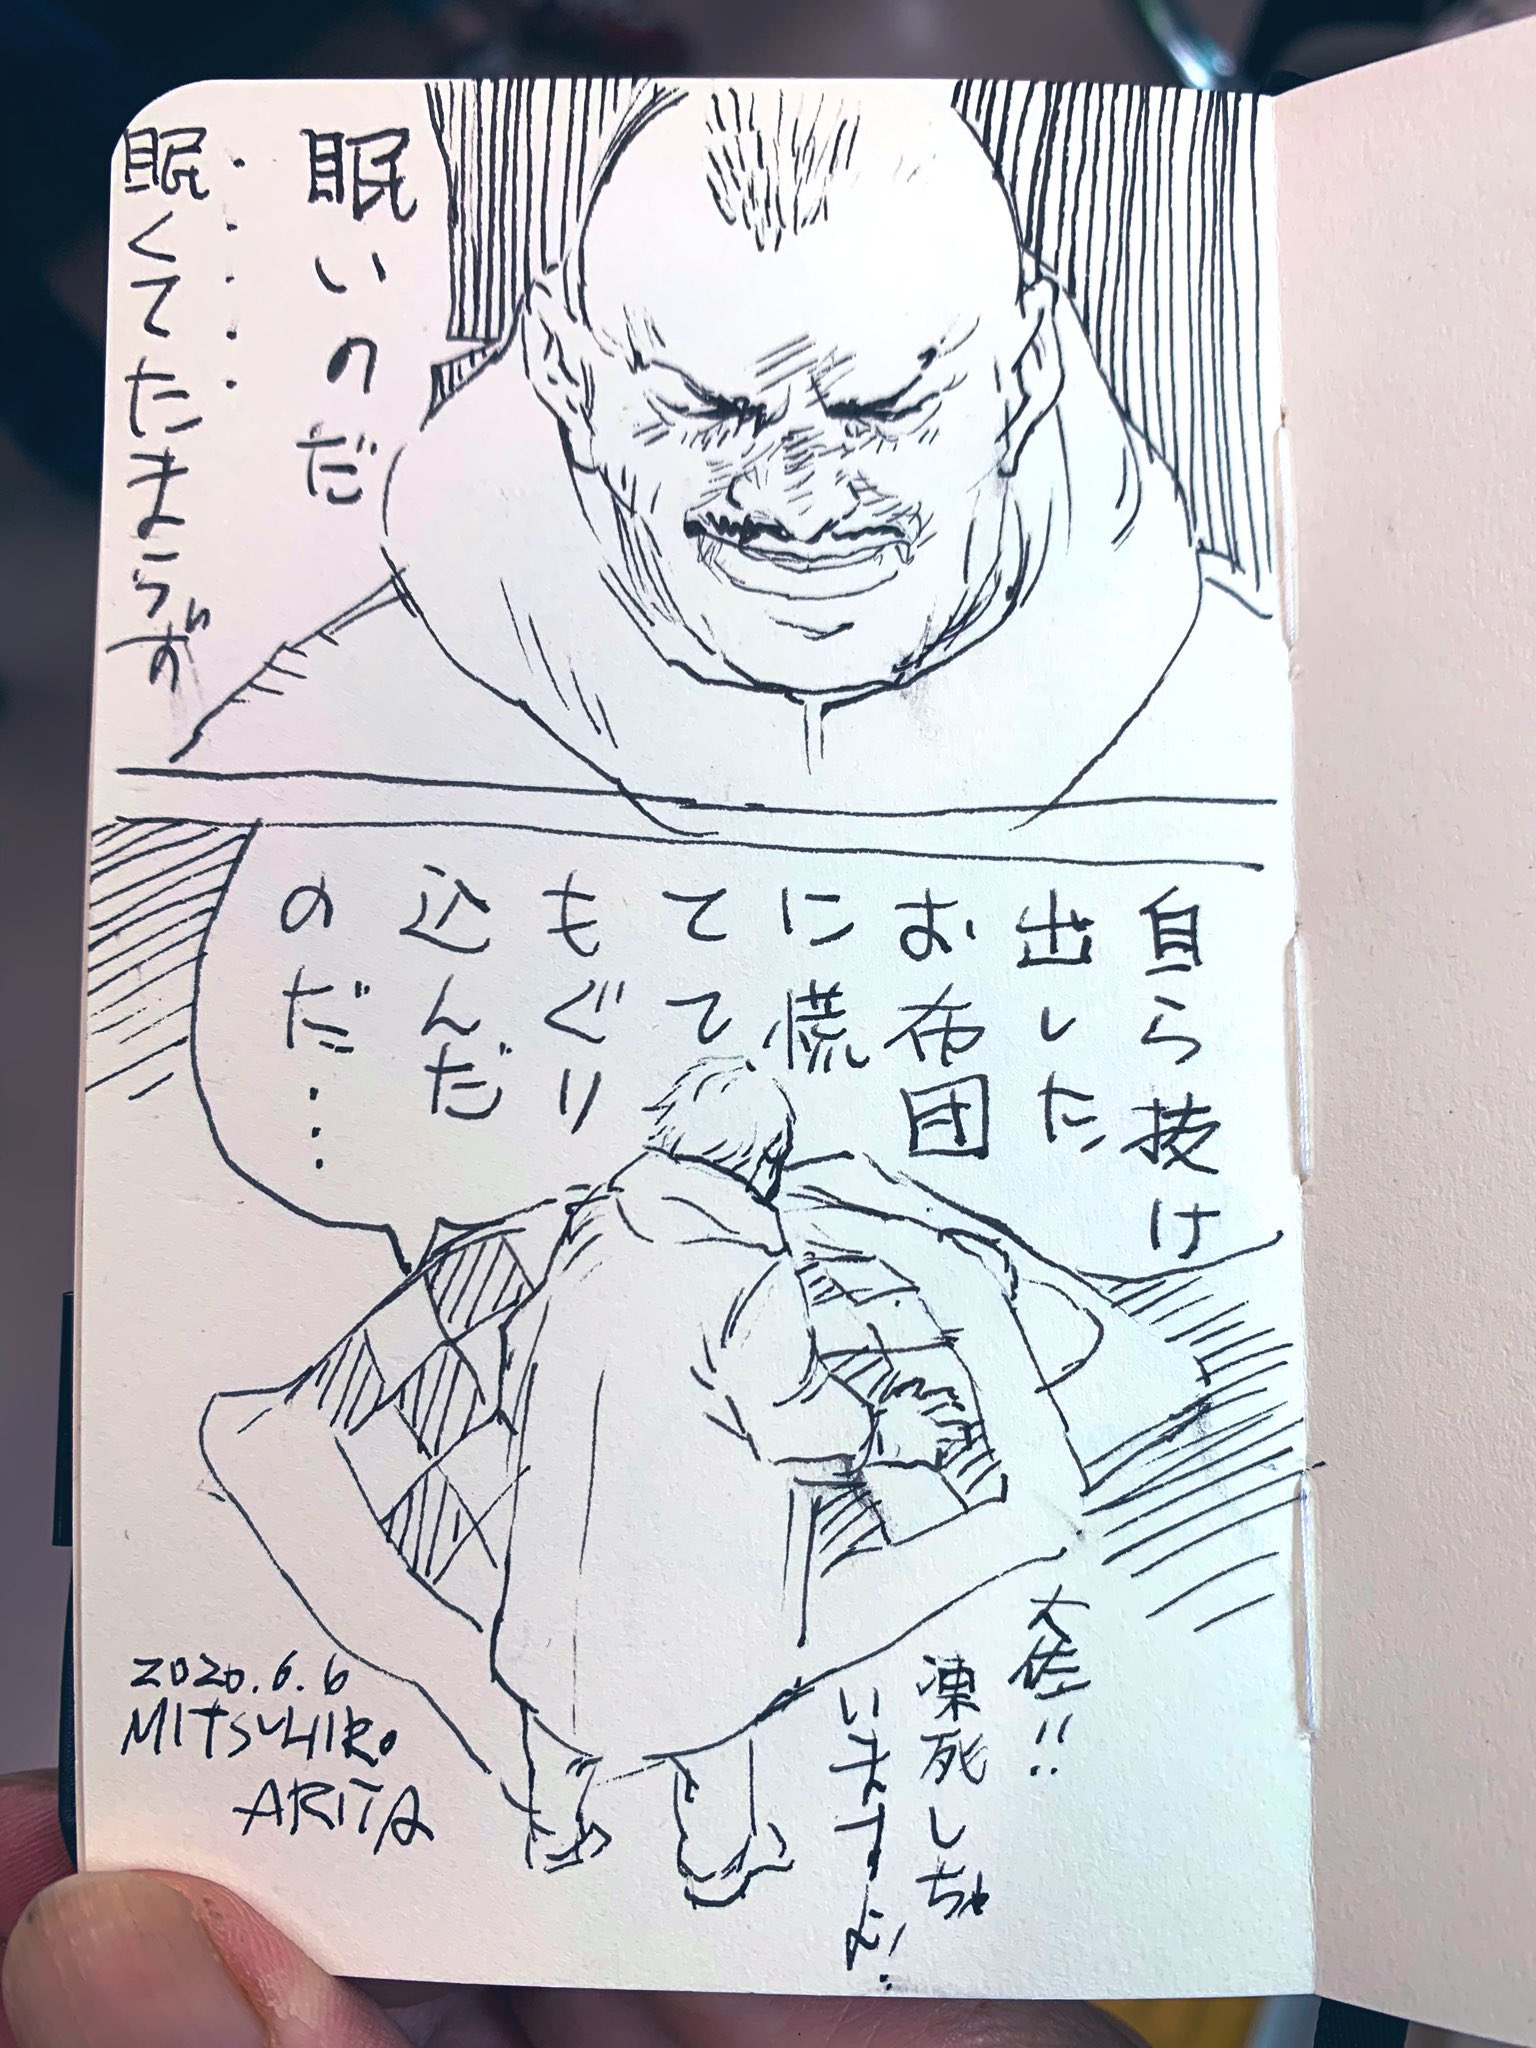 眠いのだ
・・・・・
眠くてたまらず
自ら抜け
出した
お布団
に慌
てて
もぐり
込んだ
のだ…
大佐!!
凍死しちゃ
いますってば!!
2020.6.6
MITSUHIRO
ARITA